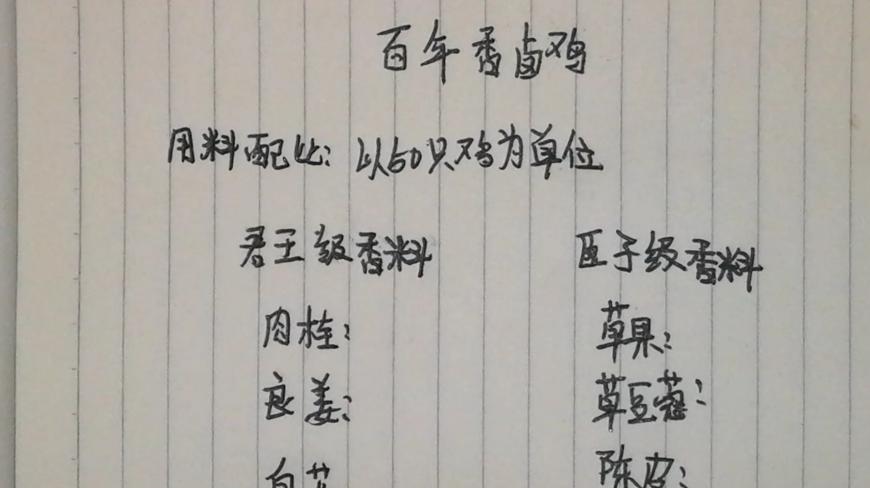 百年香卤鸡
用料配比：以50只鸡为单位
君王级香料 臣子级香料
肉桂： 草果：
良姜： 草豆蔻：
白芷 陈皮：